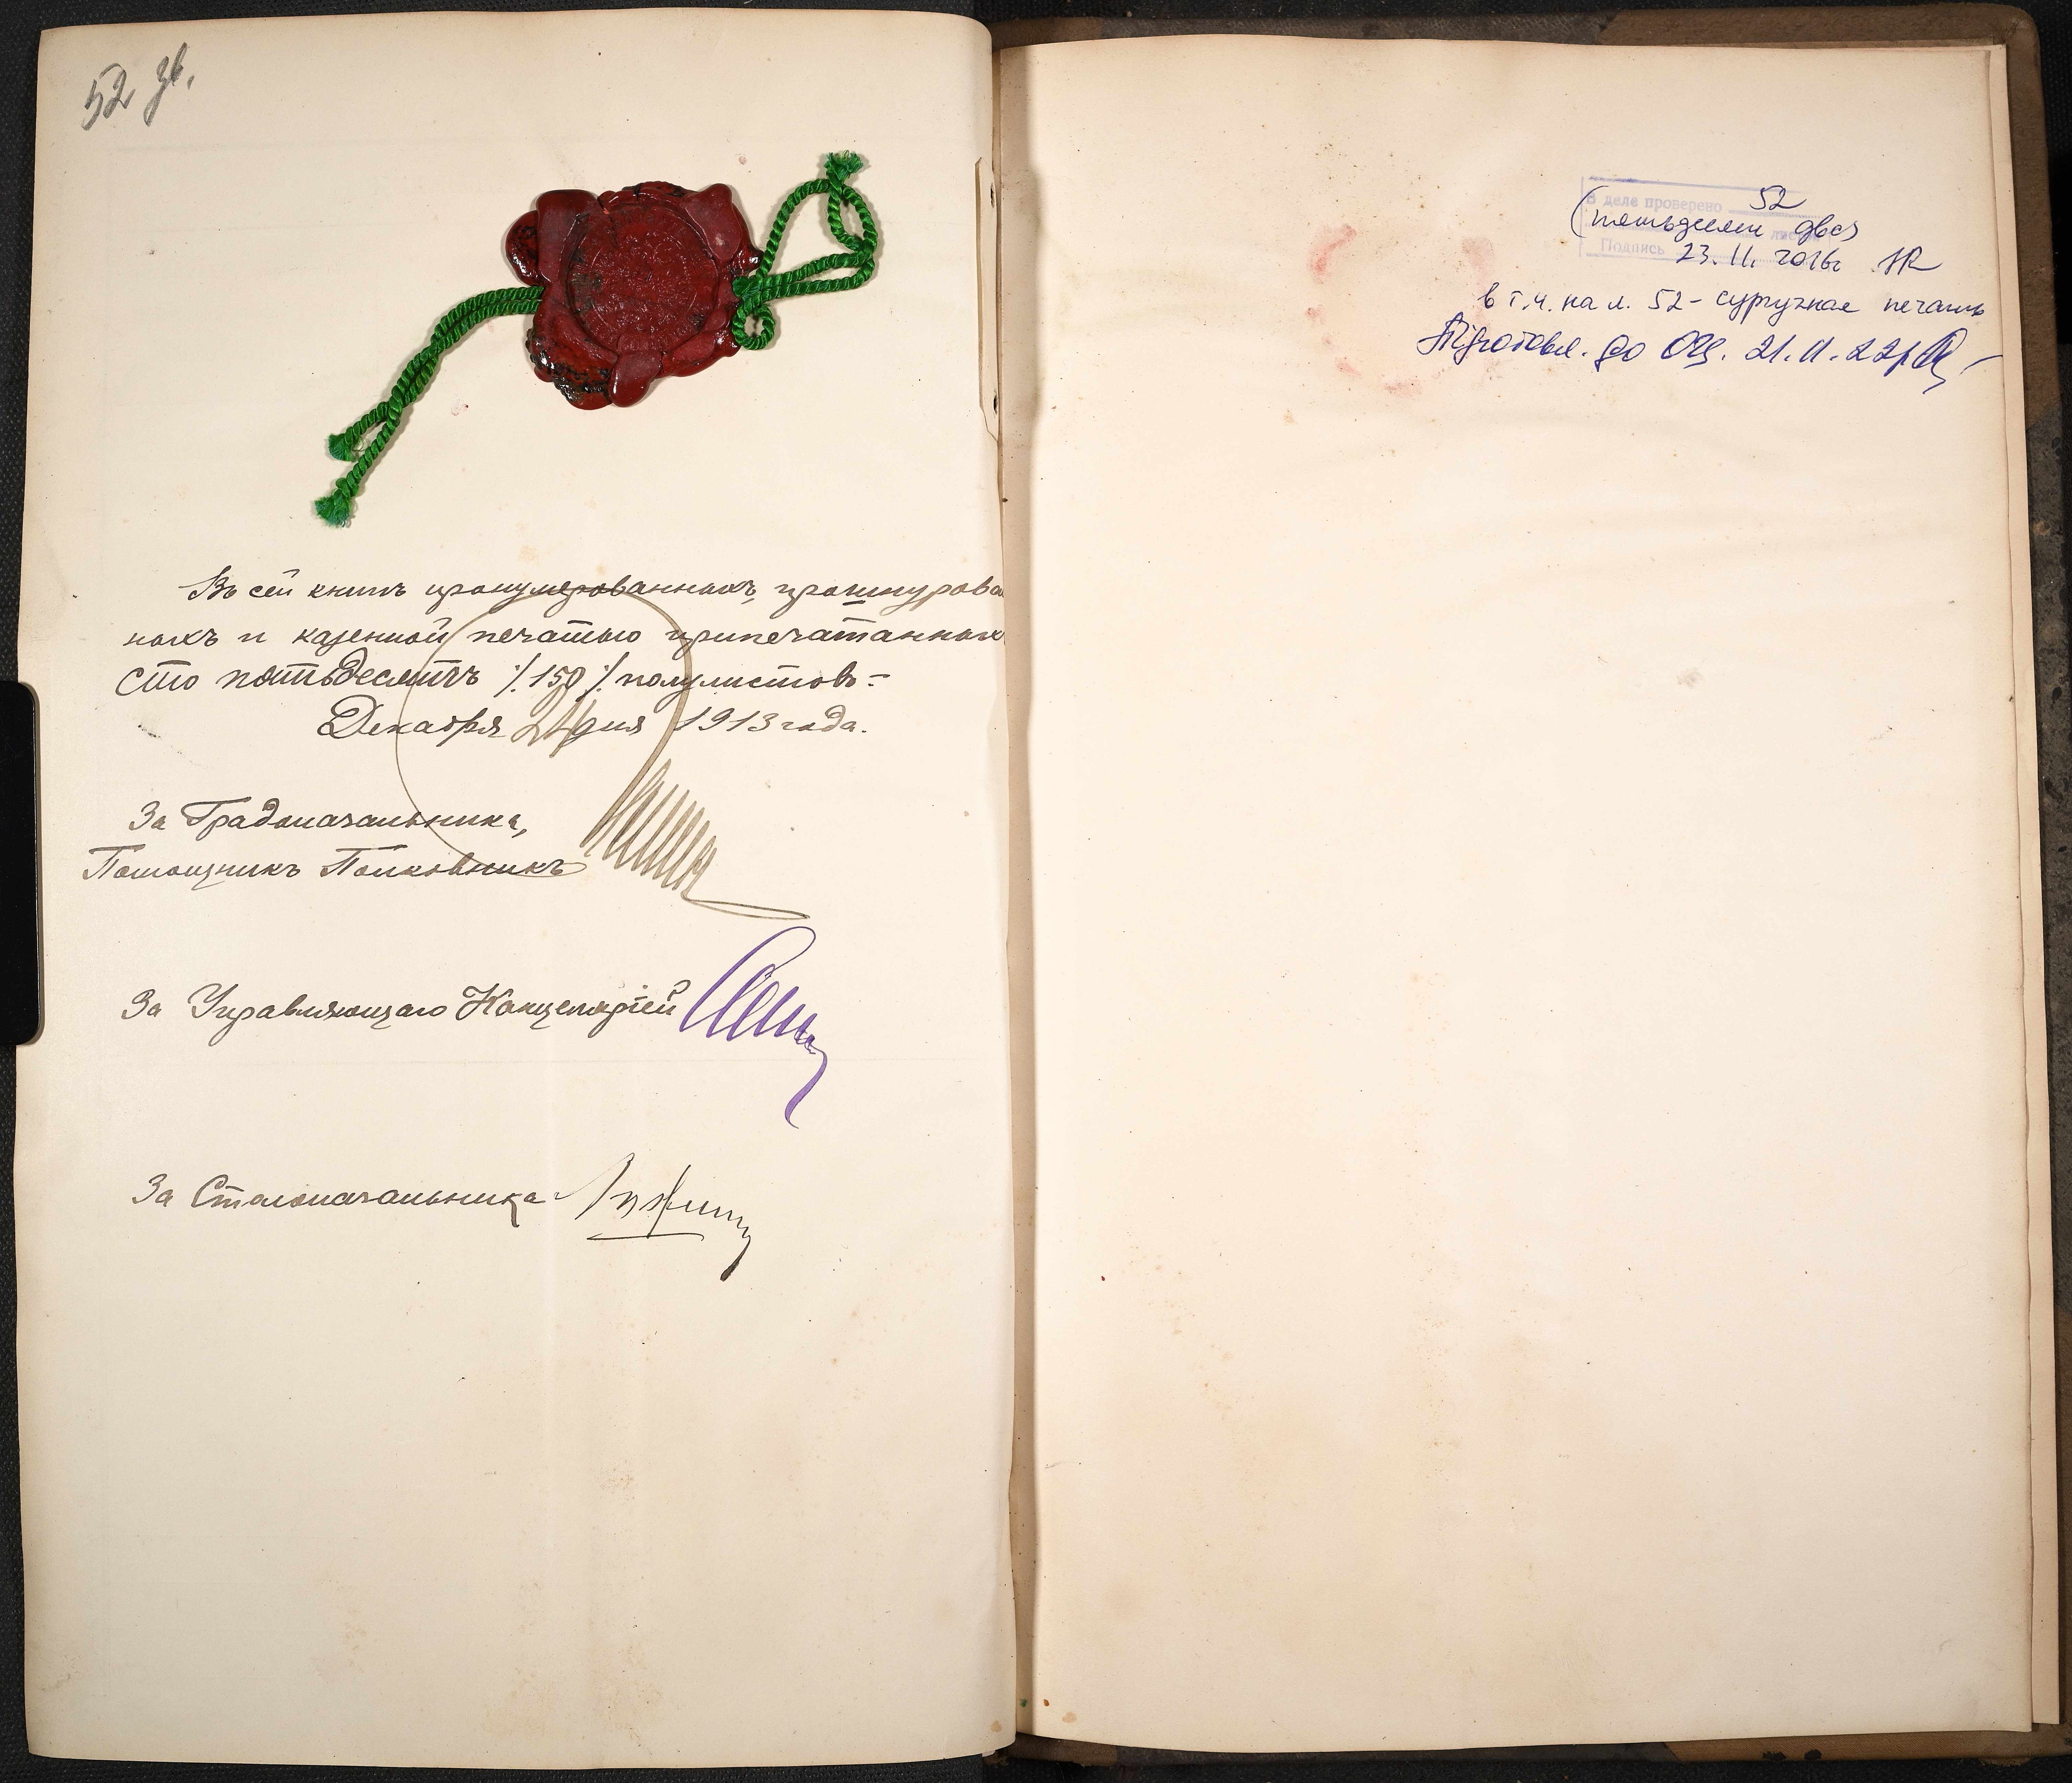 52 зв.
Въ сей книгѣ пронумерованныхъ, прошнурован
ныхъ и казенной печатью припечатанныхъ
сто пятьдесятъ /.150./ полулистовъ-
Декабря 24 дня 1913 года.
За Градоначальника,
Помощникъ Полковникъ
За Управляющаго Канцеляріей
За Столоначальника
В деле проверено 52
(пятьдесят два)
Подпись 23.11.2016г
в т.ч. на л. 52 - сургучная печать
Підготовл. до ОЦ. 21.11.22р.